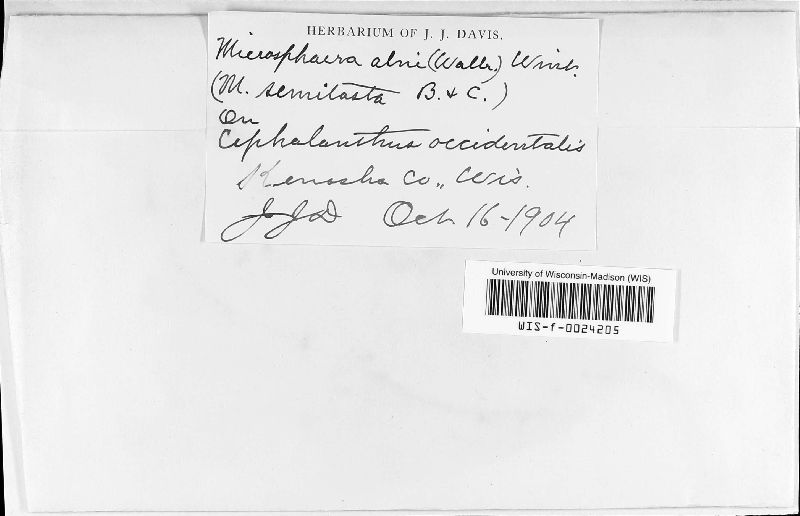 HERBARIUM OF J. J. DAVIS.
Microsphaera alni (Wallr.) Wint.
(M. semitosta B. & C.)
On
Cephalanthus occidentalis
Kenosha Co., Wis.
JJD Oct. 16-1904
University of Wisconsin-Madison (WIS)
WIS-f-0024205